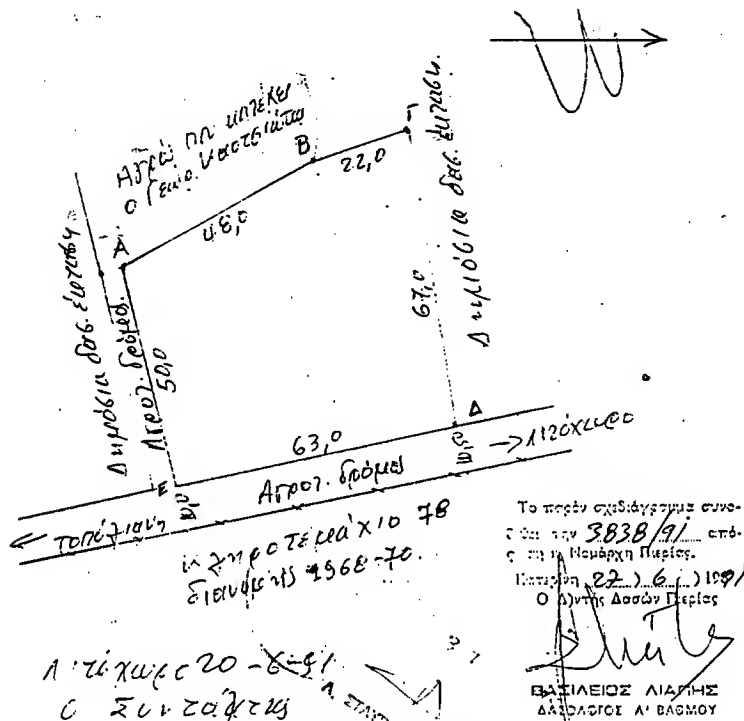 Γ
Αγρός που κατέχει
ο Γεωρ. Ναστσιάτα
Β
22,0
48,0
Α
Δημόσια δασ. έκταση.
Δημόσια δασ. έκταση
Αγροτ. δρόμος.
50,0
67,0
Δ
63,0
10,0
→ Λιτόχωρο
Ε
Αγροτ. δρόμος
10,0
κληροτεμάχιο 78
διανομής 1968-70.
Λιτόχωρο 20-6-91
Ο Συντάκτης
Το παρόν σχεδιάγραμμα συνο-
την 3838/91 από-
Νομάρχη Πιερίας.
Κατερίνη 27) 6) 1991
Ο Δ)ντής Δασών Πιερίας
ΒΑΣΙΛΕΙΟΣ ΛΙΑΠΗΣ
ΔΑΣΟΛΟΓΟΣ Α' ΒΑΘΜΟΥ